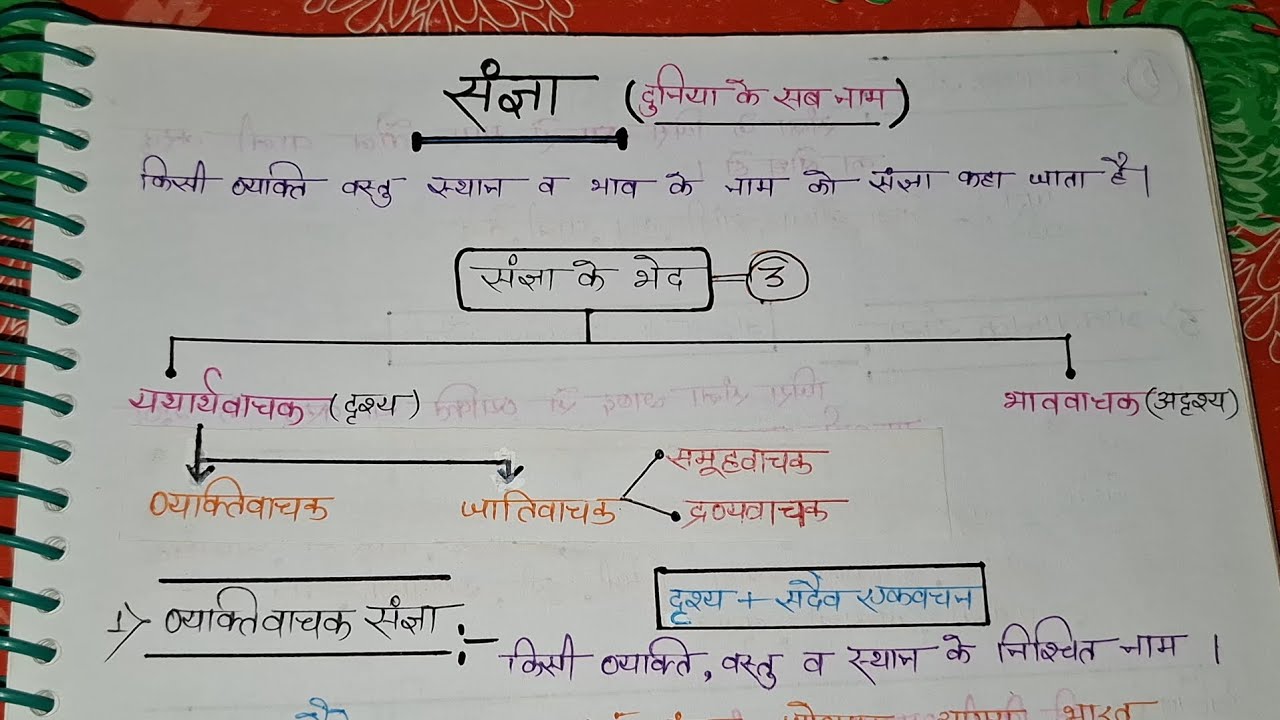 संज्ञा (दुनिया के सब नाम)
किसी व्यक्ति वस्तु स्थान व भाव के नाम को संज्ञा कहा जाता है।
संज्ञा के भेद = 3
यथार्थवाचक (दृश्य) भाववाचक (अदृश्य)
समूहवाचक
व्यक्तिवाचक जातिवाचक द्रव्यवाचक
दृश्य + सदैव एकवचन
1) व्यक्तिवाचक संज्ञा :-
किसी व्यक्ति, वस्तु व स्थान के निश्चित नाम ।
भारत